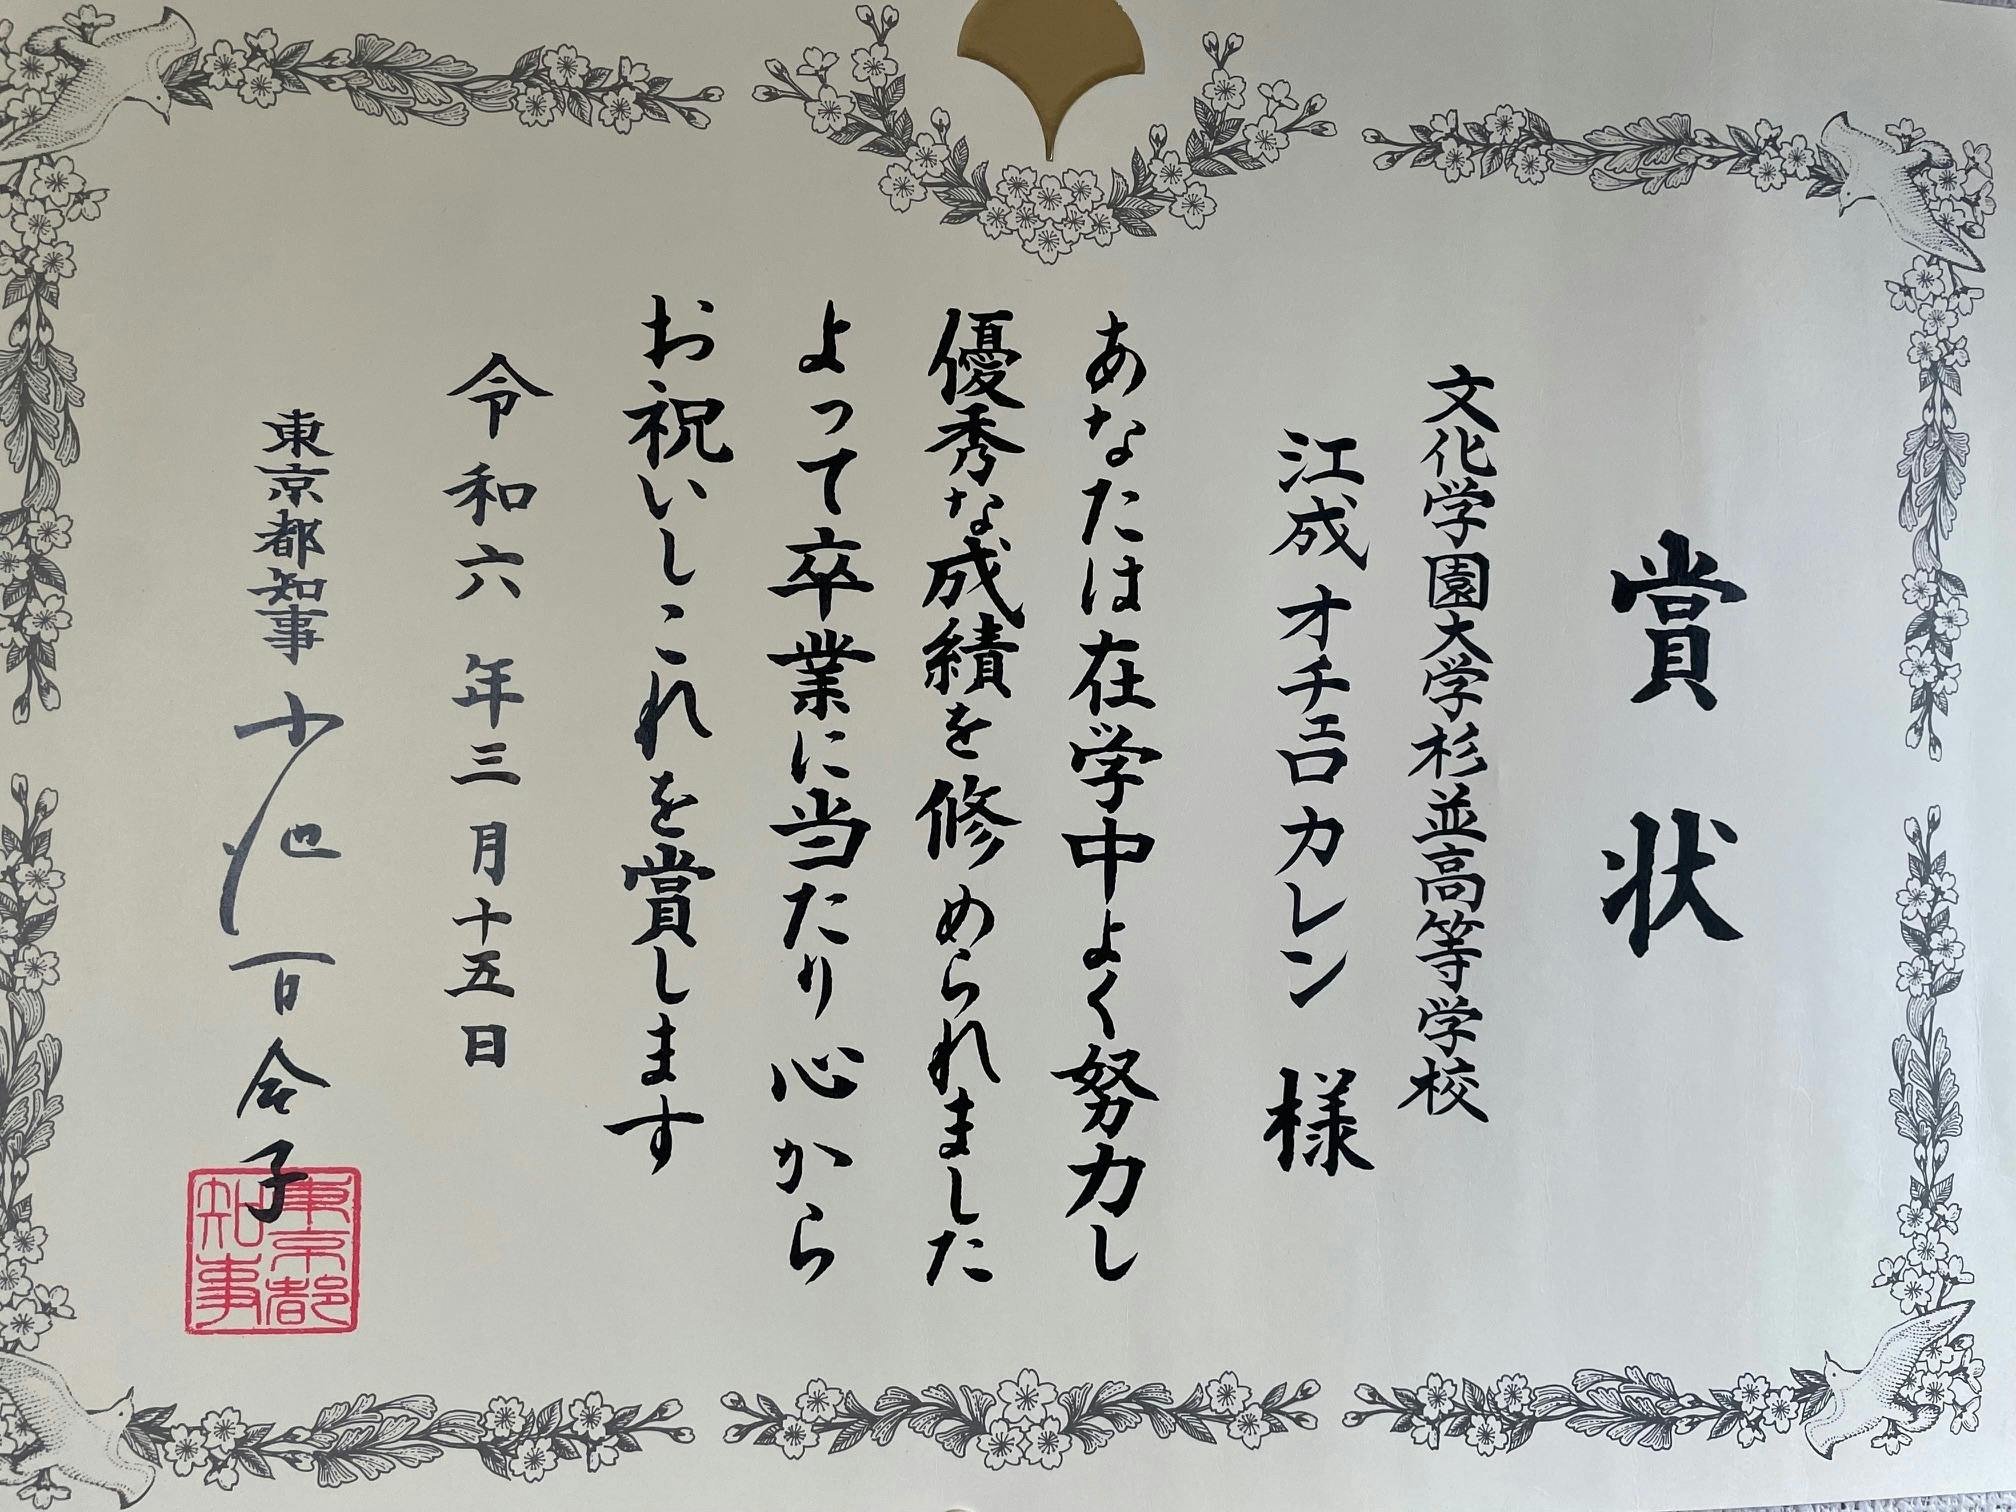 賞状
文化学園大学杉並高等学校
江成オチェロカレン 様
あなたは在学中よく努力し
優秀な成績を修められました
よって卒業に当たり心から
お祝いしこれを賞します
令和六年三月十五日
東京都知事 小池百合子
東京都
知事